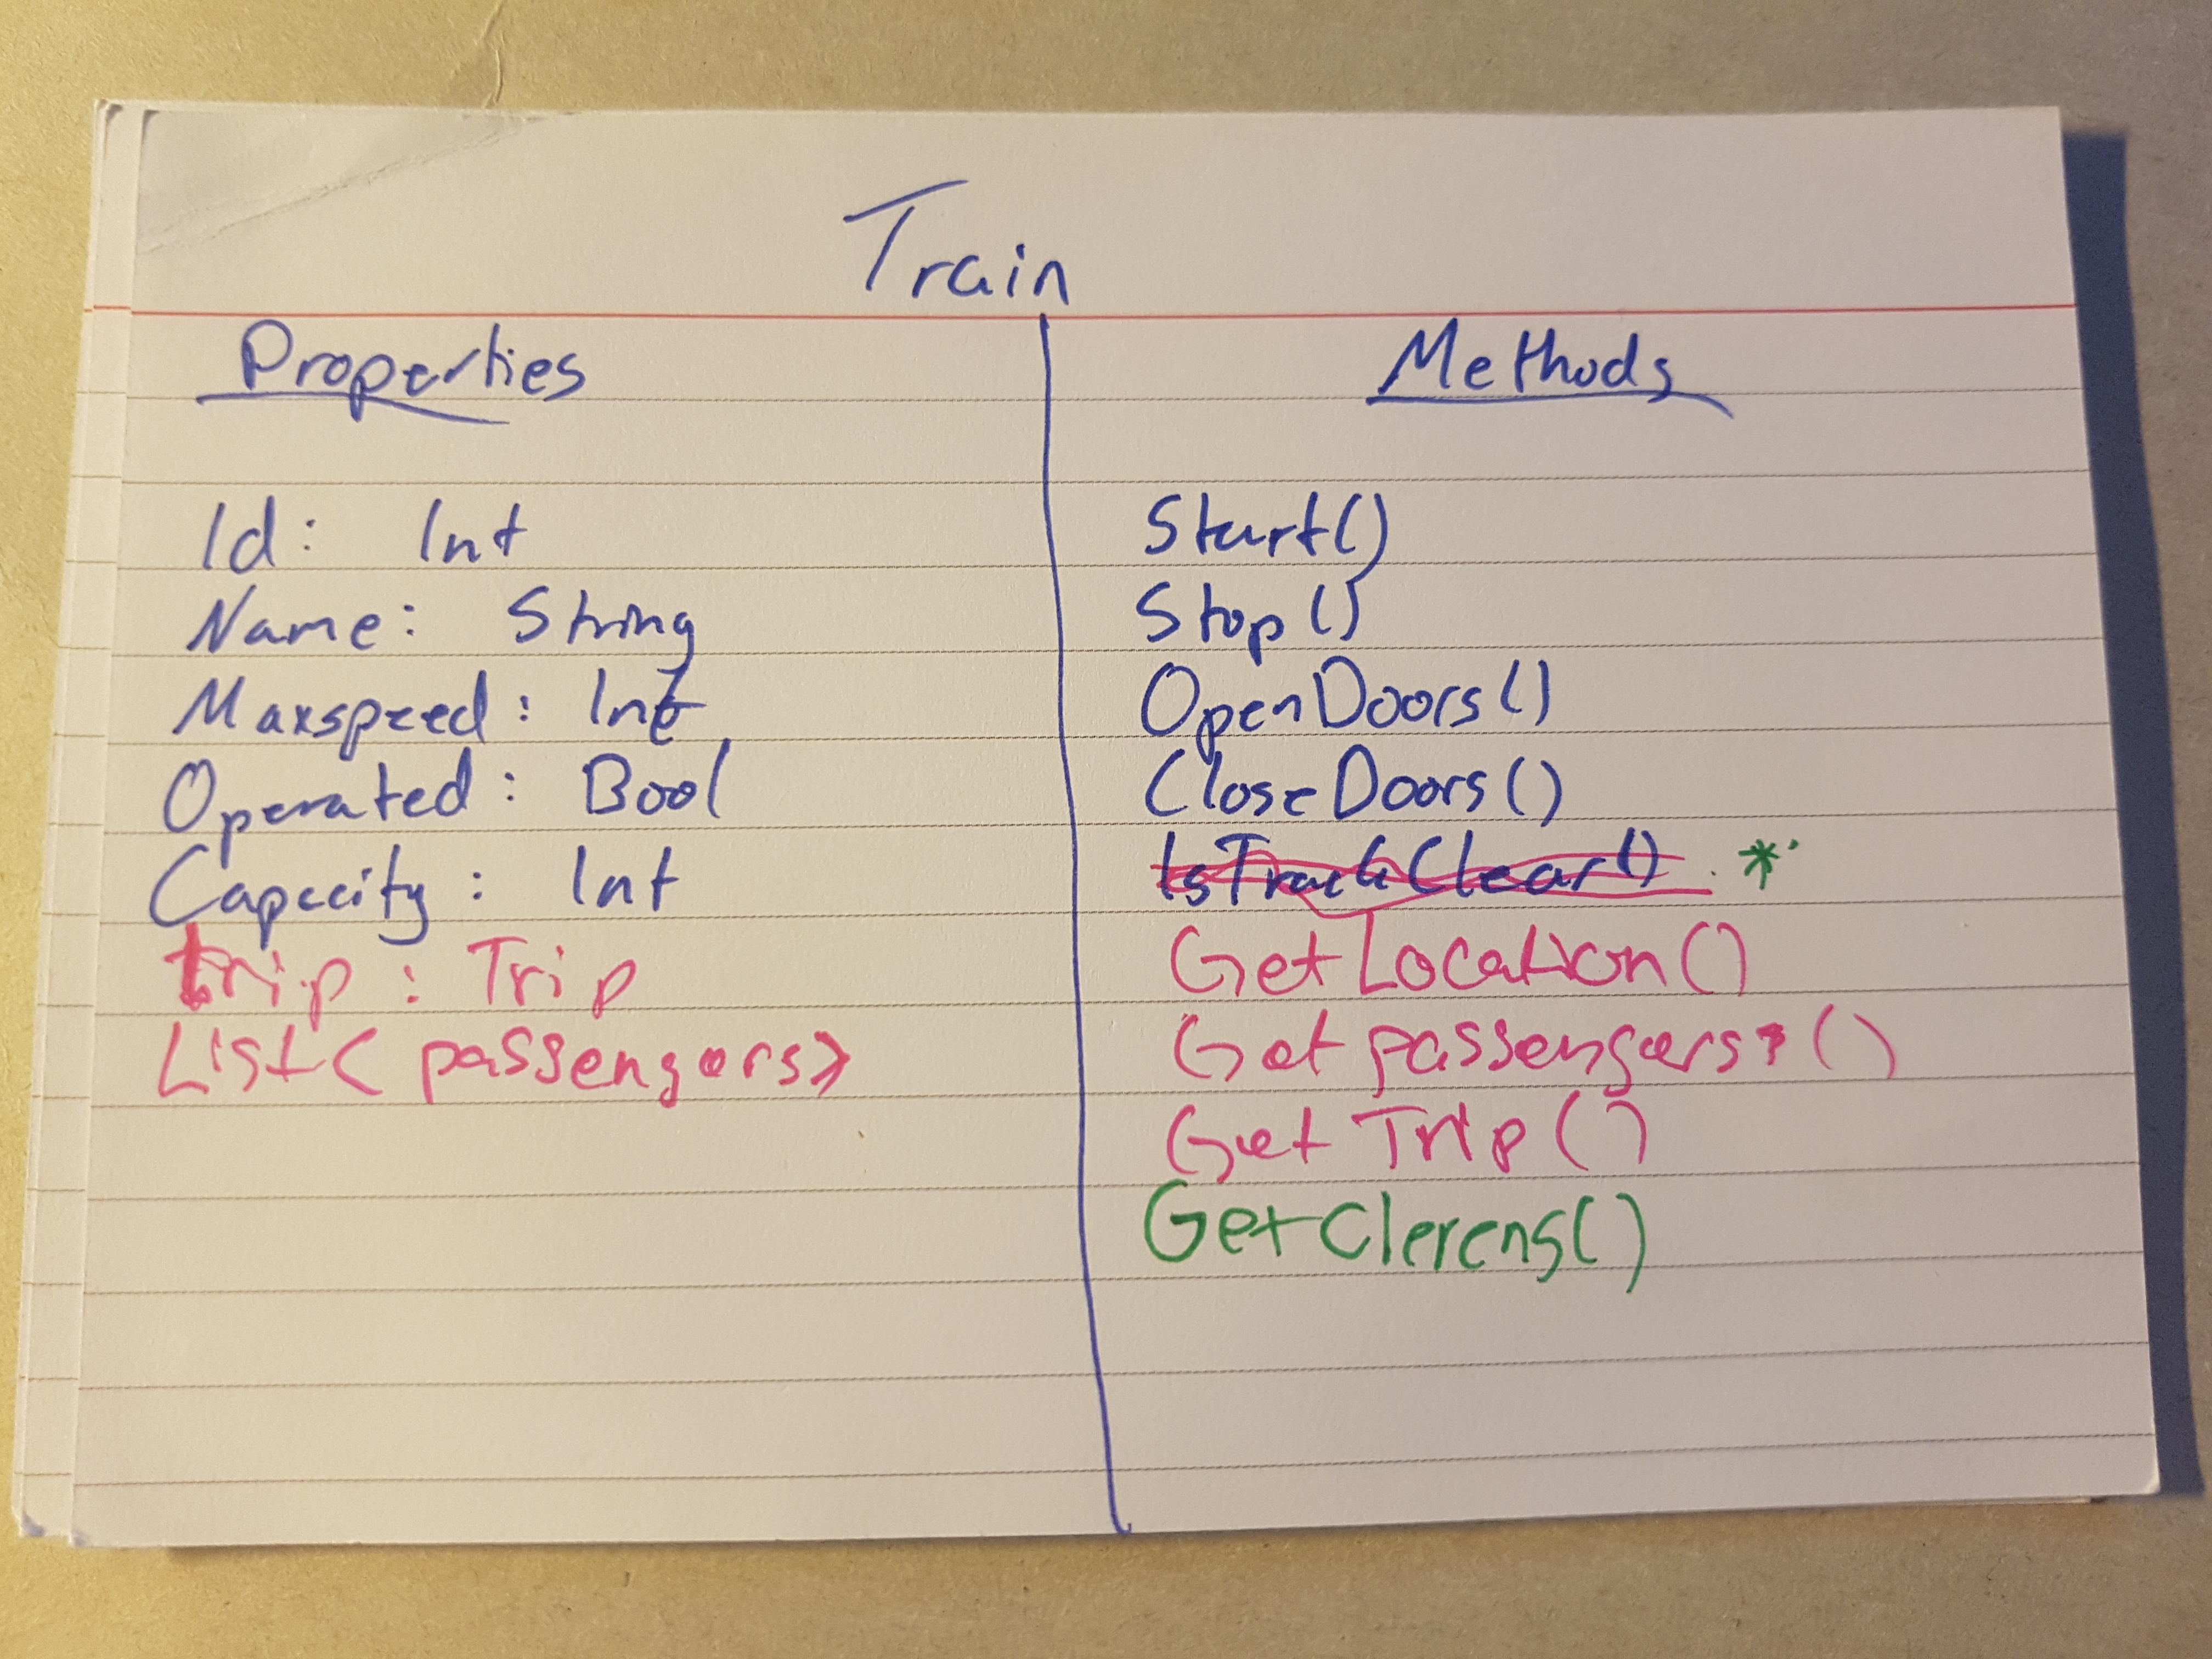 Train
Properties
Id: Int
Name: String
Maxspeed: Int
Operated: Bool
Capacity: Int
trip: Trip
List<passengers>
Methods
Start()
Stop()
OpenDoors()
CloseDoors()
IsTrackClear() *
GetLocation()
Getpassengers()
GetTrip()
GetClerens()